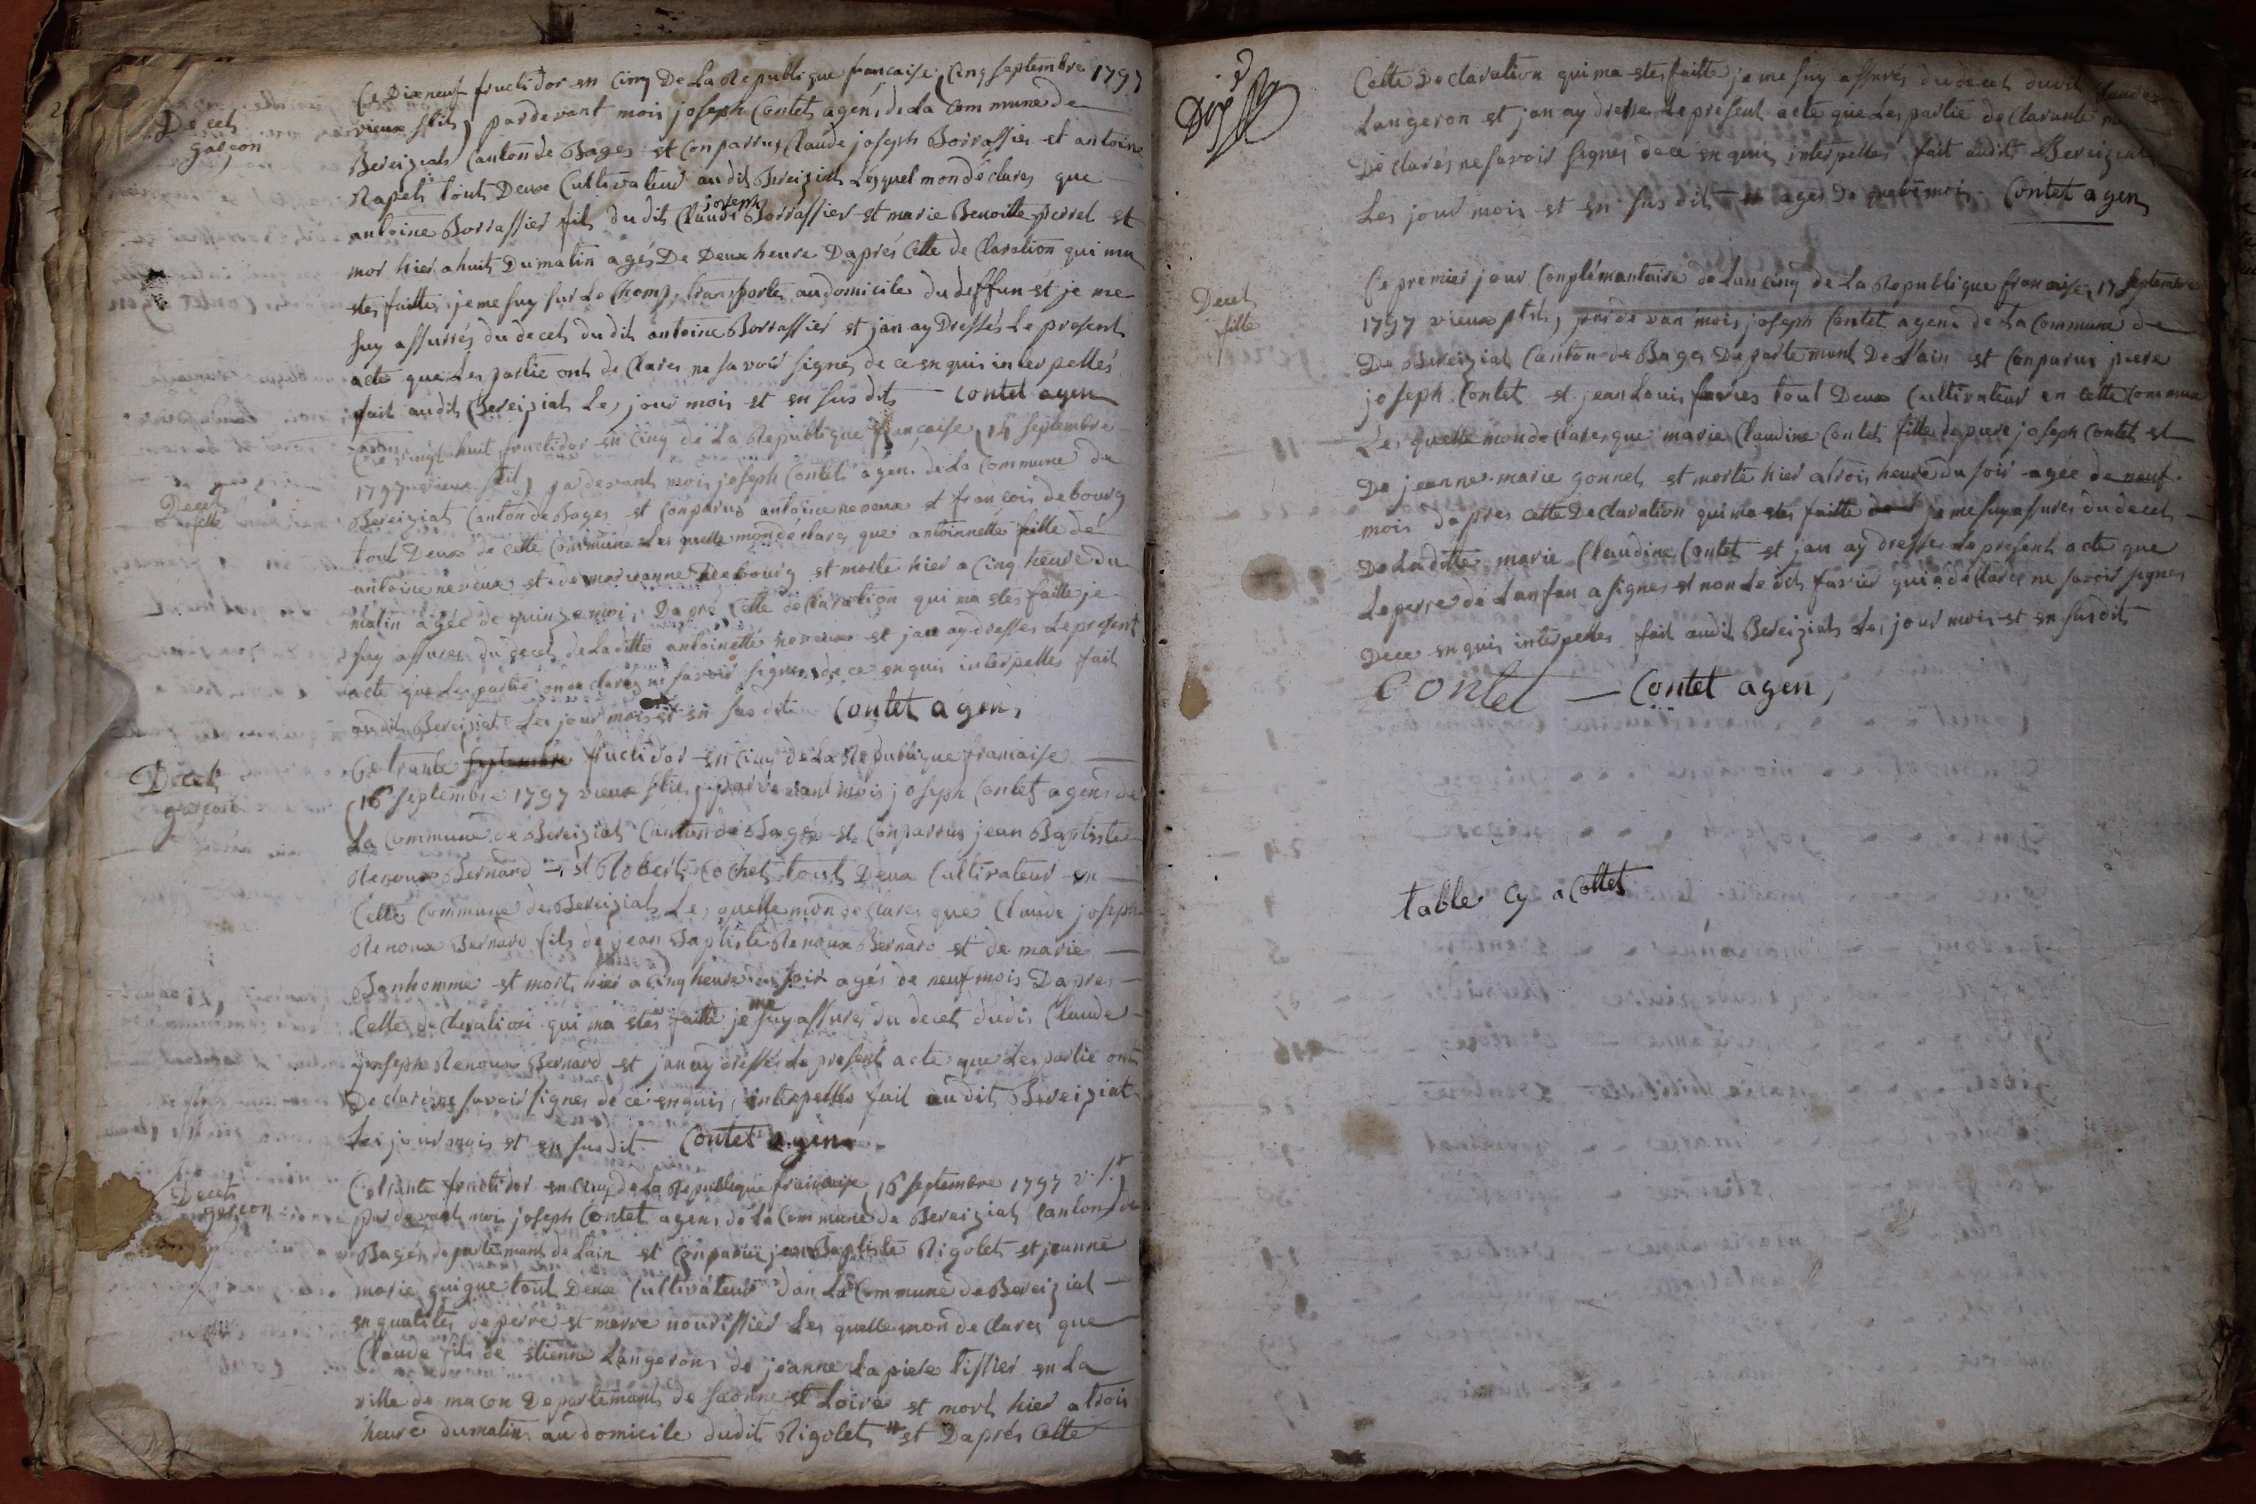 Decet
garçon
Ce Dixneuf fructidor en Cinq De La Republique francaise, Cinq septembre 1797
vieux stil, pardevant mois joseph Contet agent de La Commune de
Bereiziat Canton de Bages est Conparrus Claude joseph Borrassier et antoine
Rapet tout Deux Cultivateur audit Bereiziat Lesquel mon déclares que
antoine Borrassier fils du dit Claude joseph Borrassier et marie Benoitte perret est
mor hier a huit Du matin agés De Deux heure Daprés Cette de Claration qui ma
etes faitte je me suy sur Le Chomp, transportes au domicile du deffun et je me
suy assurrés du decet du dit antoine Borrassier et jan ay Dressés Le present
acte que Les partie ont de Clares ne savoir signes de ce en quis interpellés
fait audit Bereiziat Les jour mois et en sus dit — Contet agen
Decet
fille
Ce vingt huit fructidor en Cinq de La Republique francaise, 14 septembre
1797 vieux stil, pardevant mois joseph Contet agent de La Commune de
Bereiziat Canton de Bages est Conparus antoine neveux et francois debourg
tout Deux de cette Commune Les quelle mon déclares que antoinnette fille de
antoine neveux et de marianne debourg est morte hier a Cinq heure du
matin agée de quinze mois, Da pré Cette declaration qui ma etes faitte je
suy assures du decet de Laditte antoinette neveux et jan ay dresses Le present
acte que Les partie on de clares ne savoir signes de ce en quis interpelles fait
audit Bereiziat Les jour mois et en sus dit Contet agen,
Decet
garcont
Ce trante septembre fructidor en Cinq de La Republique francaise —
(16 septembre 1797 vieux stil, pardevant mois joseph Contet agent de
La Commune de Bereiziat Canton de Bages est Conparrus jean Baptiste
Renoux Bernard — et Robert Cochet tout Deux Cultivateur en —
Cette Commune de Bereiziat Les quelle mon de Clares que Claude joseph
Renoux Bernard fils de jean Baptiste Renoux Bernard et de marie —
Bonhomme est mort hier a Cinq heure du soir agés de neuf mois Dapres —
Cette de Claration qui ma etes faitte je me suy assures du decet dudit Claude
joseph Renoux Bernard et jan ay dressés Le present acte que Les partie ont
De clares ne savoir signes de ce en quis, interpelles fait au dit Bereiziat
Les jour mois et en sus dit — Contet agen.
Decet
garcon
Ce trante fructidor en Cinq de La Republique francaise, 16 septembre 1797 v. st
par devant mois joseph Contet agent de La Commune de Bereiziat Canton de
Bages departemant de Lain est Conparue jean Baptiste Rigolet et jeanne
marie guigue tout Deux Cultivateur dan La Commune de Bereiziat —
en qualites de perre et merre nourissier Les quelle mon de Clares que
Claude fils de etienne Langeron, de jeanne La piere tissier en La
ville de macon Departemant de saonne et Loire est mort hier a trois
heure du matin au domicile dudit Rigolet # et Daprés Cette
Dix
Cette Declaration qui ma etes faitte je me suy assurés du decet dudit Claude
Langeron et jan ay dresse Le present acte que Les partie declarante
De clarés ne savoir signes de ce en quis interpelles fait audit Bereiziat
Les jour mois et en sus dit — # ages De mois. Contet agen
Decet
fille
Ce premier jour Conplémantaire de Lan Cinq de La Republique francaise, 17 septembre
1797 vieux stil, par de van mois joseph Contet agent de La Commune de
De Bereiziat Canton de Bages Departemant De Lain est Conparus piere
joseph Contet et jean Louis favies tout Deux Cultivateur en cette Commune
Les quelle mon de Clares que marie Claudine Contet fille de piere joseph Contet et
De jeanne marie gonnet est morte hier a trois heure du soir agée de neuf
mois dapres cette Declaration qui ma etes faitte je me suy assures du decet
De Laditte marie Claudine Contet et jan ay dresse Le present acte que
Le perre de Lanfan a signes et non Le dit favier qui a déClares ne savoir signes
De ce en quis interpelles fait audit Bereiziat Les jour mois et en sus dit
Contet — Contet agen,
table cy a Collet